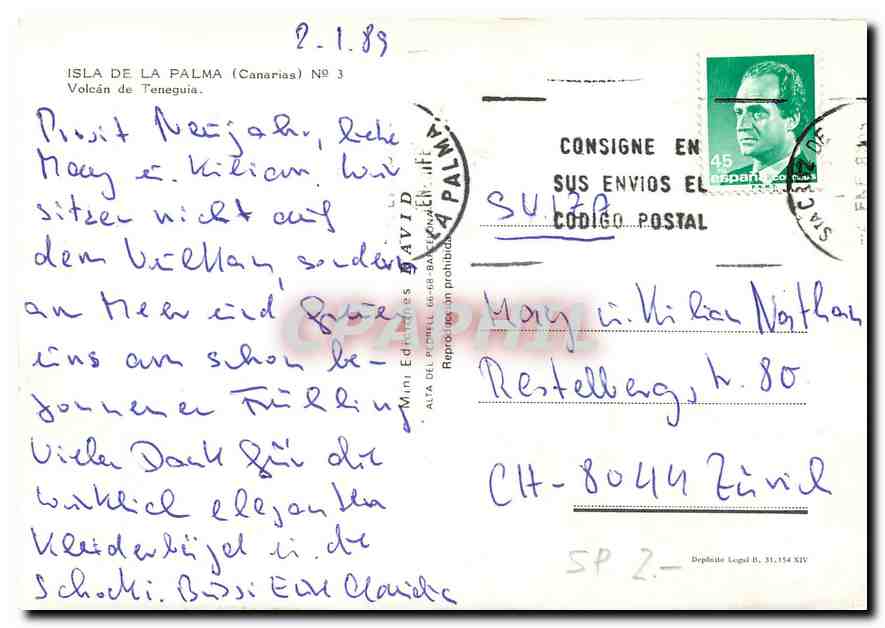 2.1.89
ISLA DE LA PALMA (Canarias) Nº 3
Volcán de Teneguia.
Prosit Neujahr, liebe
Mary u. Kilian. Wir
sitzen nicht auf
dem Vulkan, sondern
am Meer und freuen
uns am schon be-
gonnenen Frühling
Vielen Dank für die
wirklich eleganten
Kleiderbügel u. die
Schoki. Bussi Eure Claudia
Mini Ediciones DAVID
ALTA DEL PEDRELL 66-68-BARCELONA
Reproducción prohibida
LA PALMA
CONSIGNE EN
SUS ENVIOS EL
CODIGO POSTAL
STA C
DE
45
españa
CORREOS
SUIZA
Mary u. Kilian Näthan
Restelbergstr. 80
CH-8044 Zürich
CPAPHIL
SP 2.-
Depósito Legal B. 31.154 XIV